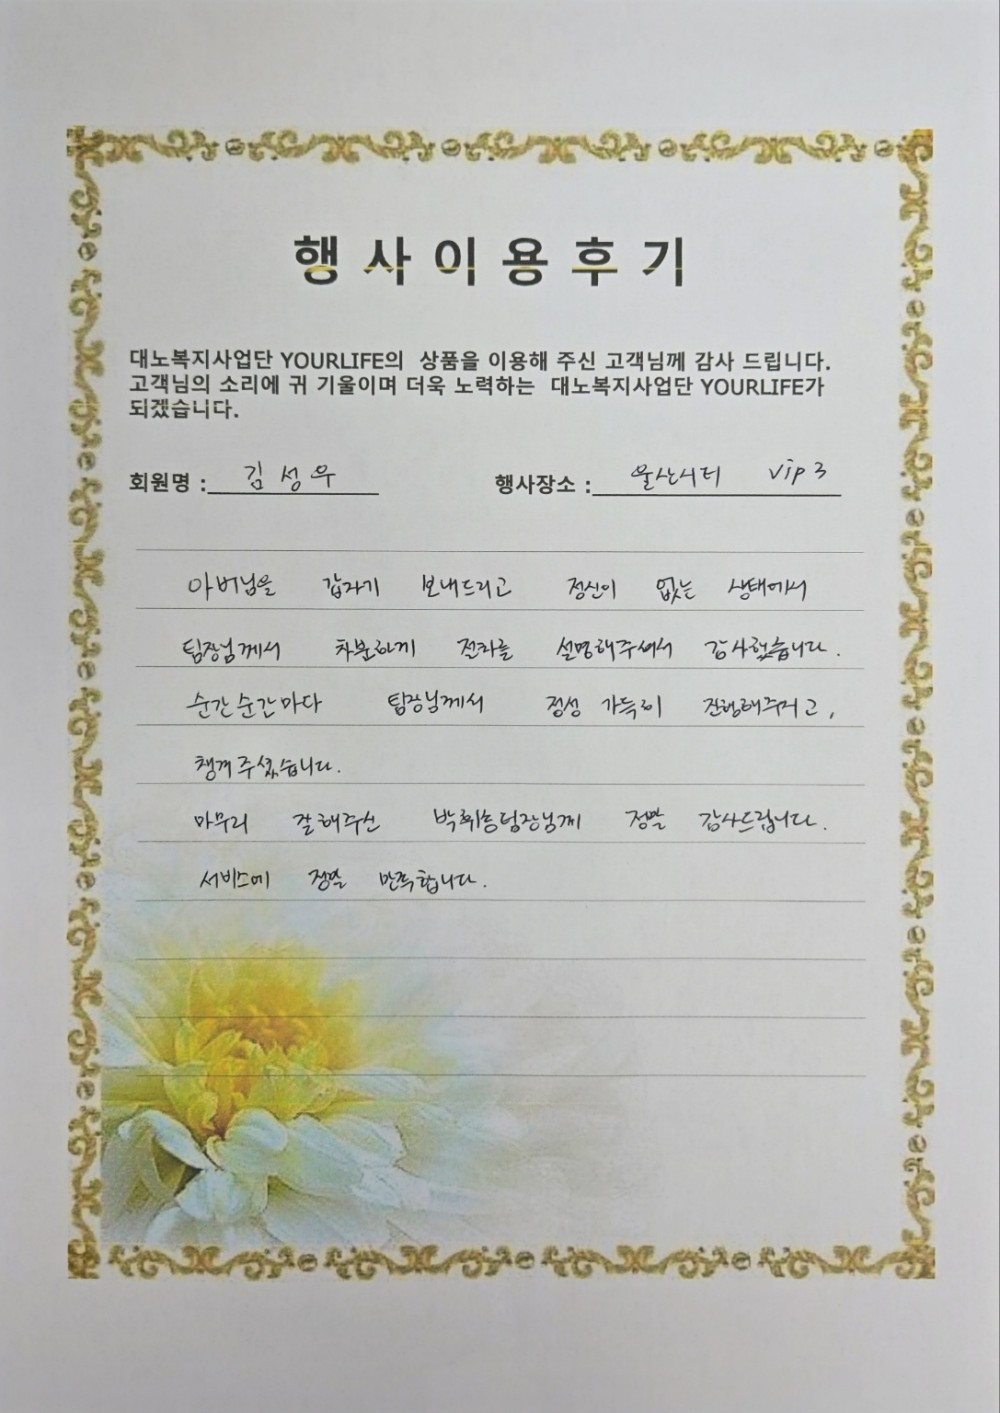 행 사 이 용 후 기
대노복지사업단 YOURLIFE의 상품을 이용해 주신 고객님께 감사 드립니다.
고객님의 소리에 귀 기울이며 더욱 노력하는 대노복지사업단 YOURLIFE가
되겠습니다.
회원명 : 김성우 행사장소 : 울산시티 vip 3
아버님을 갑자기 보내드리고 정신이 없는 상태에서
팀장님께서 차분하게 절차를 설명해주셔서 감사했습니다.
순간순간마다 팀장님께서 정성 가득히 진행해주시고,
챙겨주셨습니다.
마무리 잘해주신 박휘동팀장님께 정말 감사드립니다.
서비스에 정말 만족합니다.